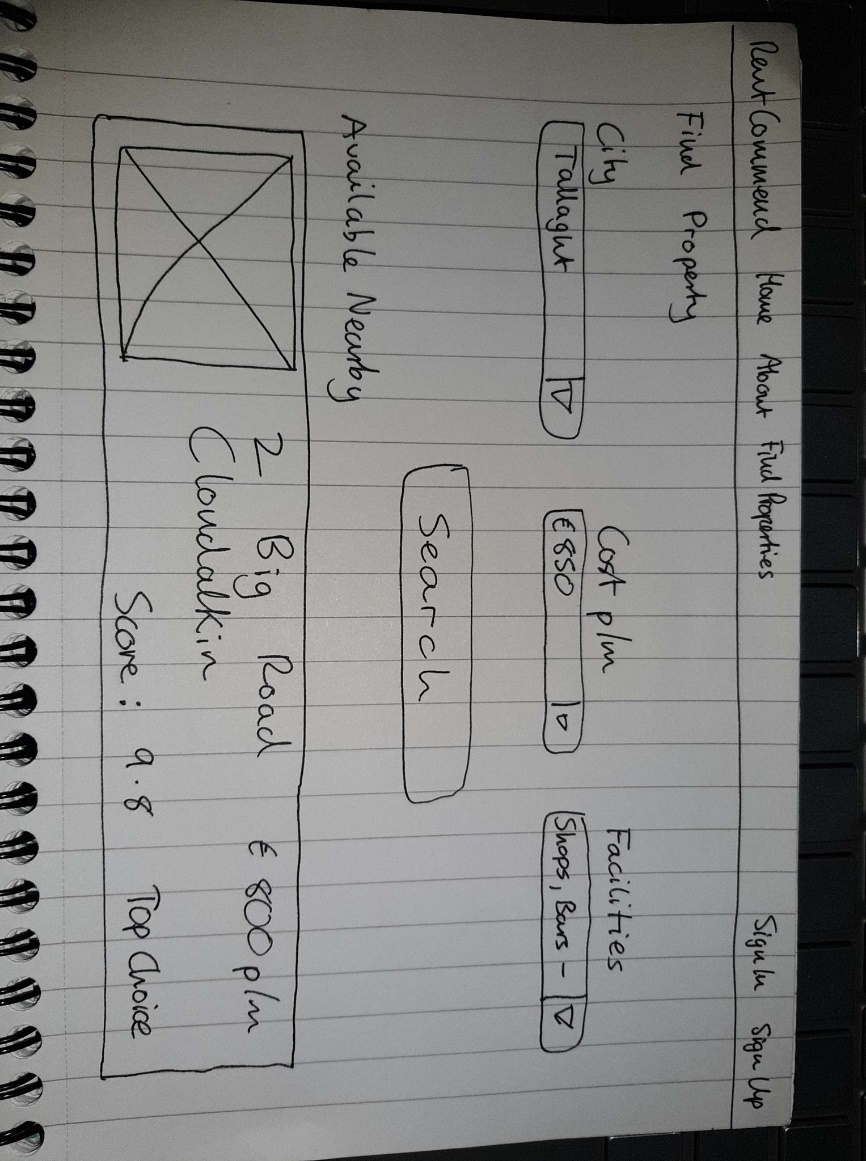 RentCommend Home About Find Properties Sign In Sign Up
Find Property
City Cost p/m Facilities
Tallaght €850 Shops, Bars -
Search
Available Nearby
2 Big Road €800 p/m
Clondalkin
Score: 9.8 Top Choice